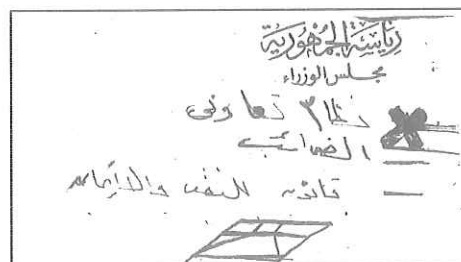 رئاسة الجمهورية
مجلس الوزراء
نظام تعاوني
الضرائب
قانون للنفط والغاز